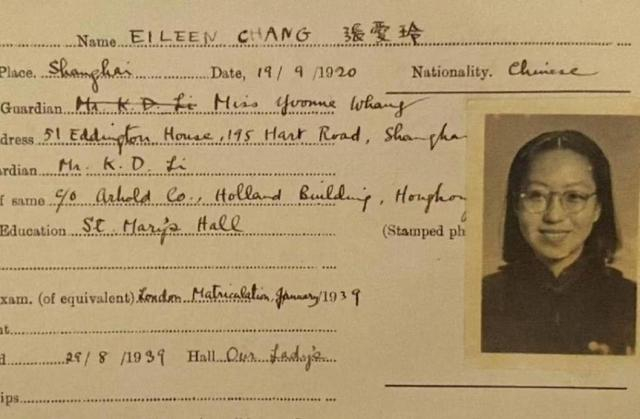 Name EILEEN CHANG 張愛玲
Place. Shanghai Date, 19/9/1920 Nationality. Chinese
Guardian Mr. K. D. Li Miss Yvonne Whang
dress 51 Eddington House, 195 Hart Road, Shangha
rdian Mr. K. D. Li
f same c/o Arnhold Co., Holland Building, Hongkon
Education St. Mary's Hall (Stamped ph
xam. (of equivalent) London Matriculation, January/1939
nt
d 29/8/1939 Hall Our Lady's
ips